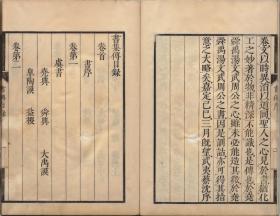 卷文以時異治以道同聖人之心見於書猶化
工之妙著於物非精深不能識也是傳也於堯
舜禹湯文武周公之心雖未必能造其微於堯
舜禹湯文武周公之書因是訓詁亦可得其指
意之大略矣嘉定己巳三月既望武夷蔡沈序
書集傳目錄
卷首
書序
卷第一
虞書
堯典 舜典 大禹謨
皐陶謨 益稷
卷第二